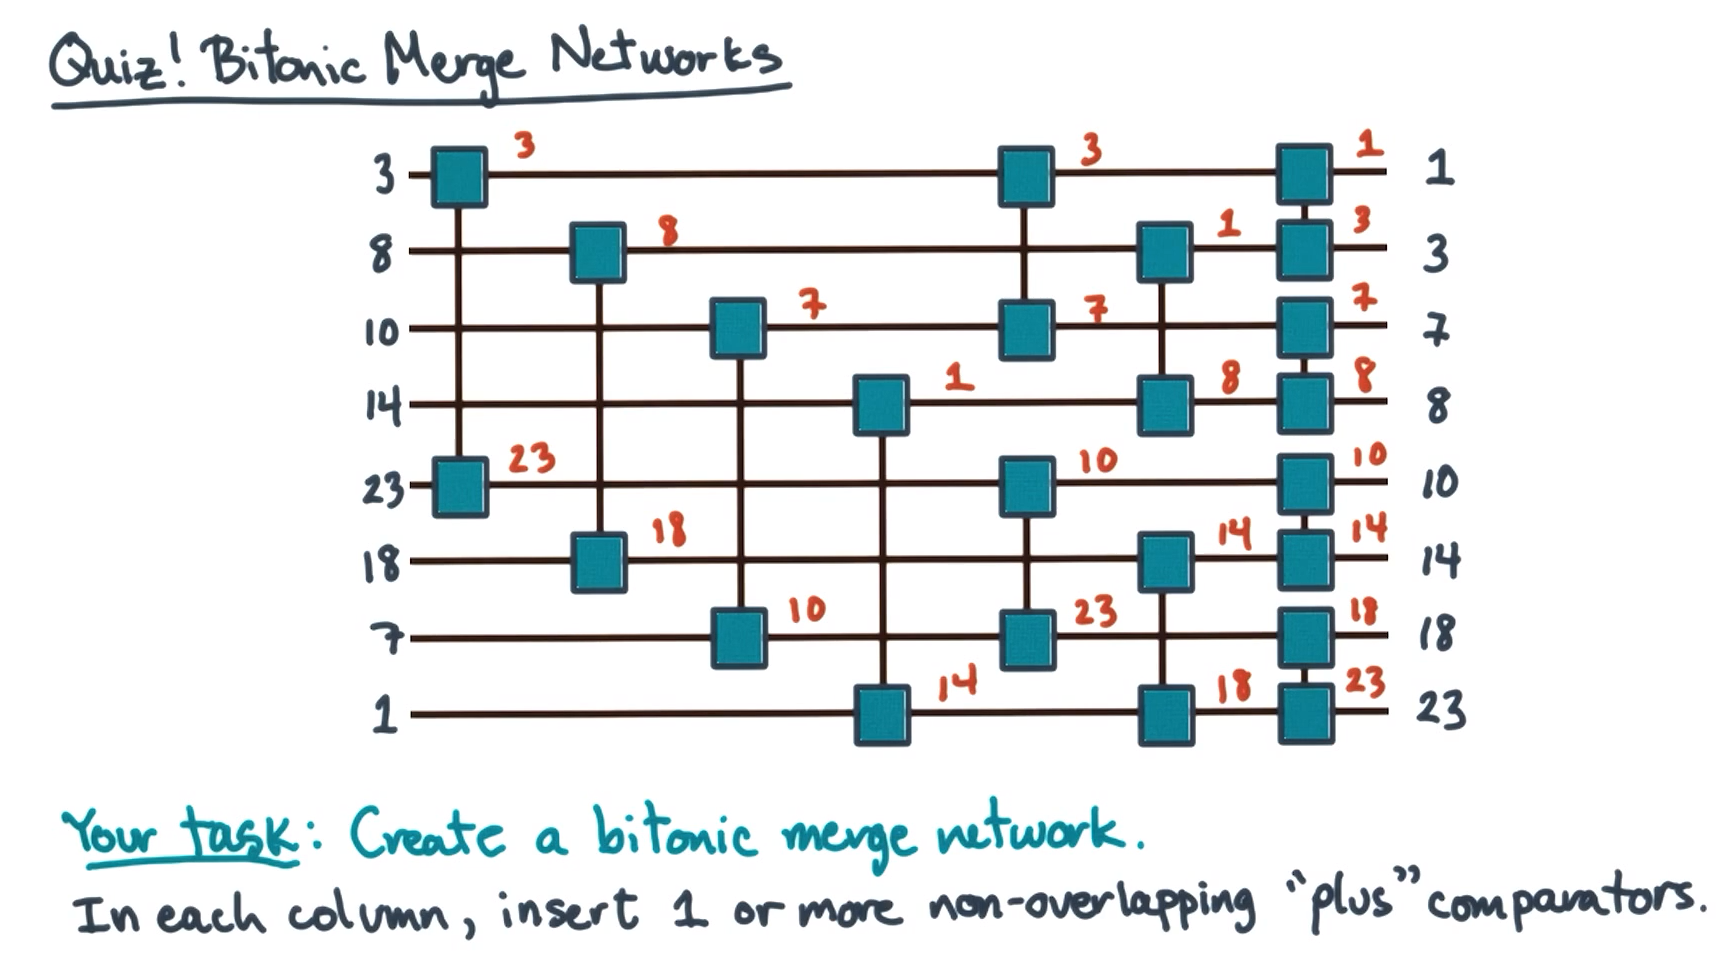 Quiz! Bitonic Merge Networks
3 3 3 1 1
8 8 1 3 3
10 7 7 7 7
14 1 8 8 8
23 23 10 10 10
18 18 14 14 14
7 10 23 18 18
1 14 18 23 23
Your task: Create a bitonic merge network.
In each column, insert 1 or more non-overlapping "plus" comparators.